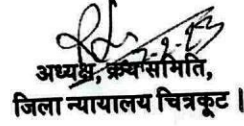 अध्यक्ष, क्रय समिति,
जिला न्यायालय चित्रकूट।